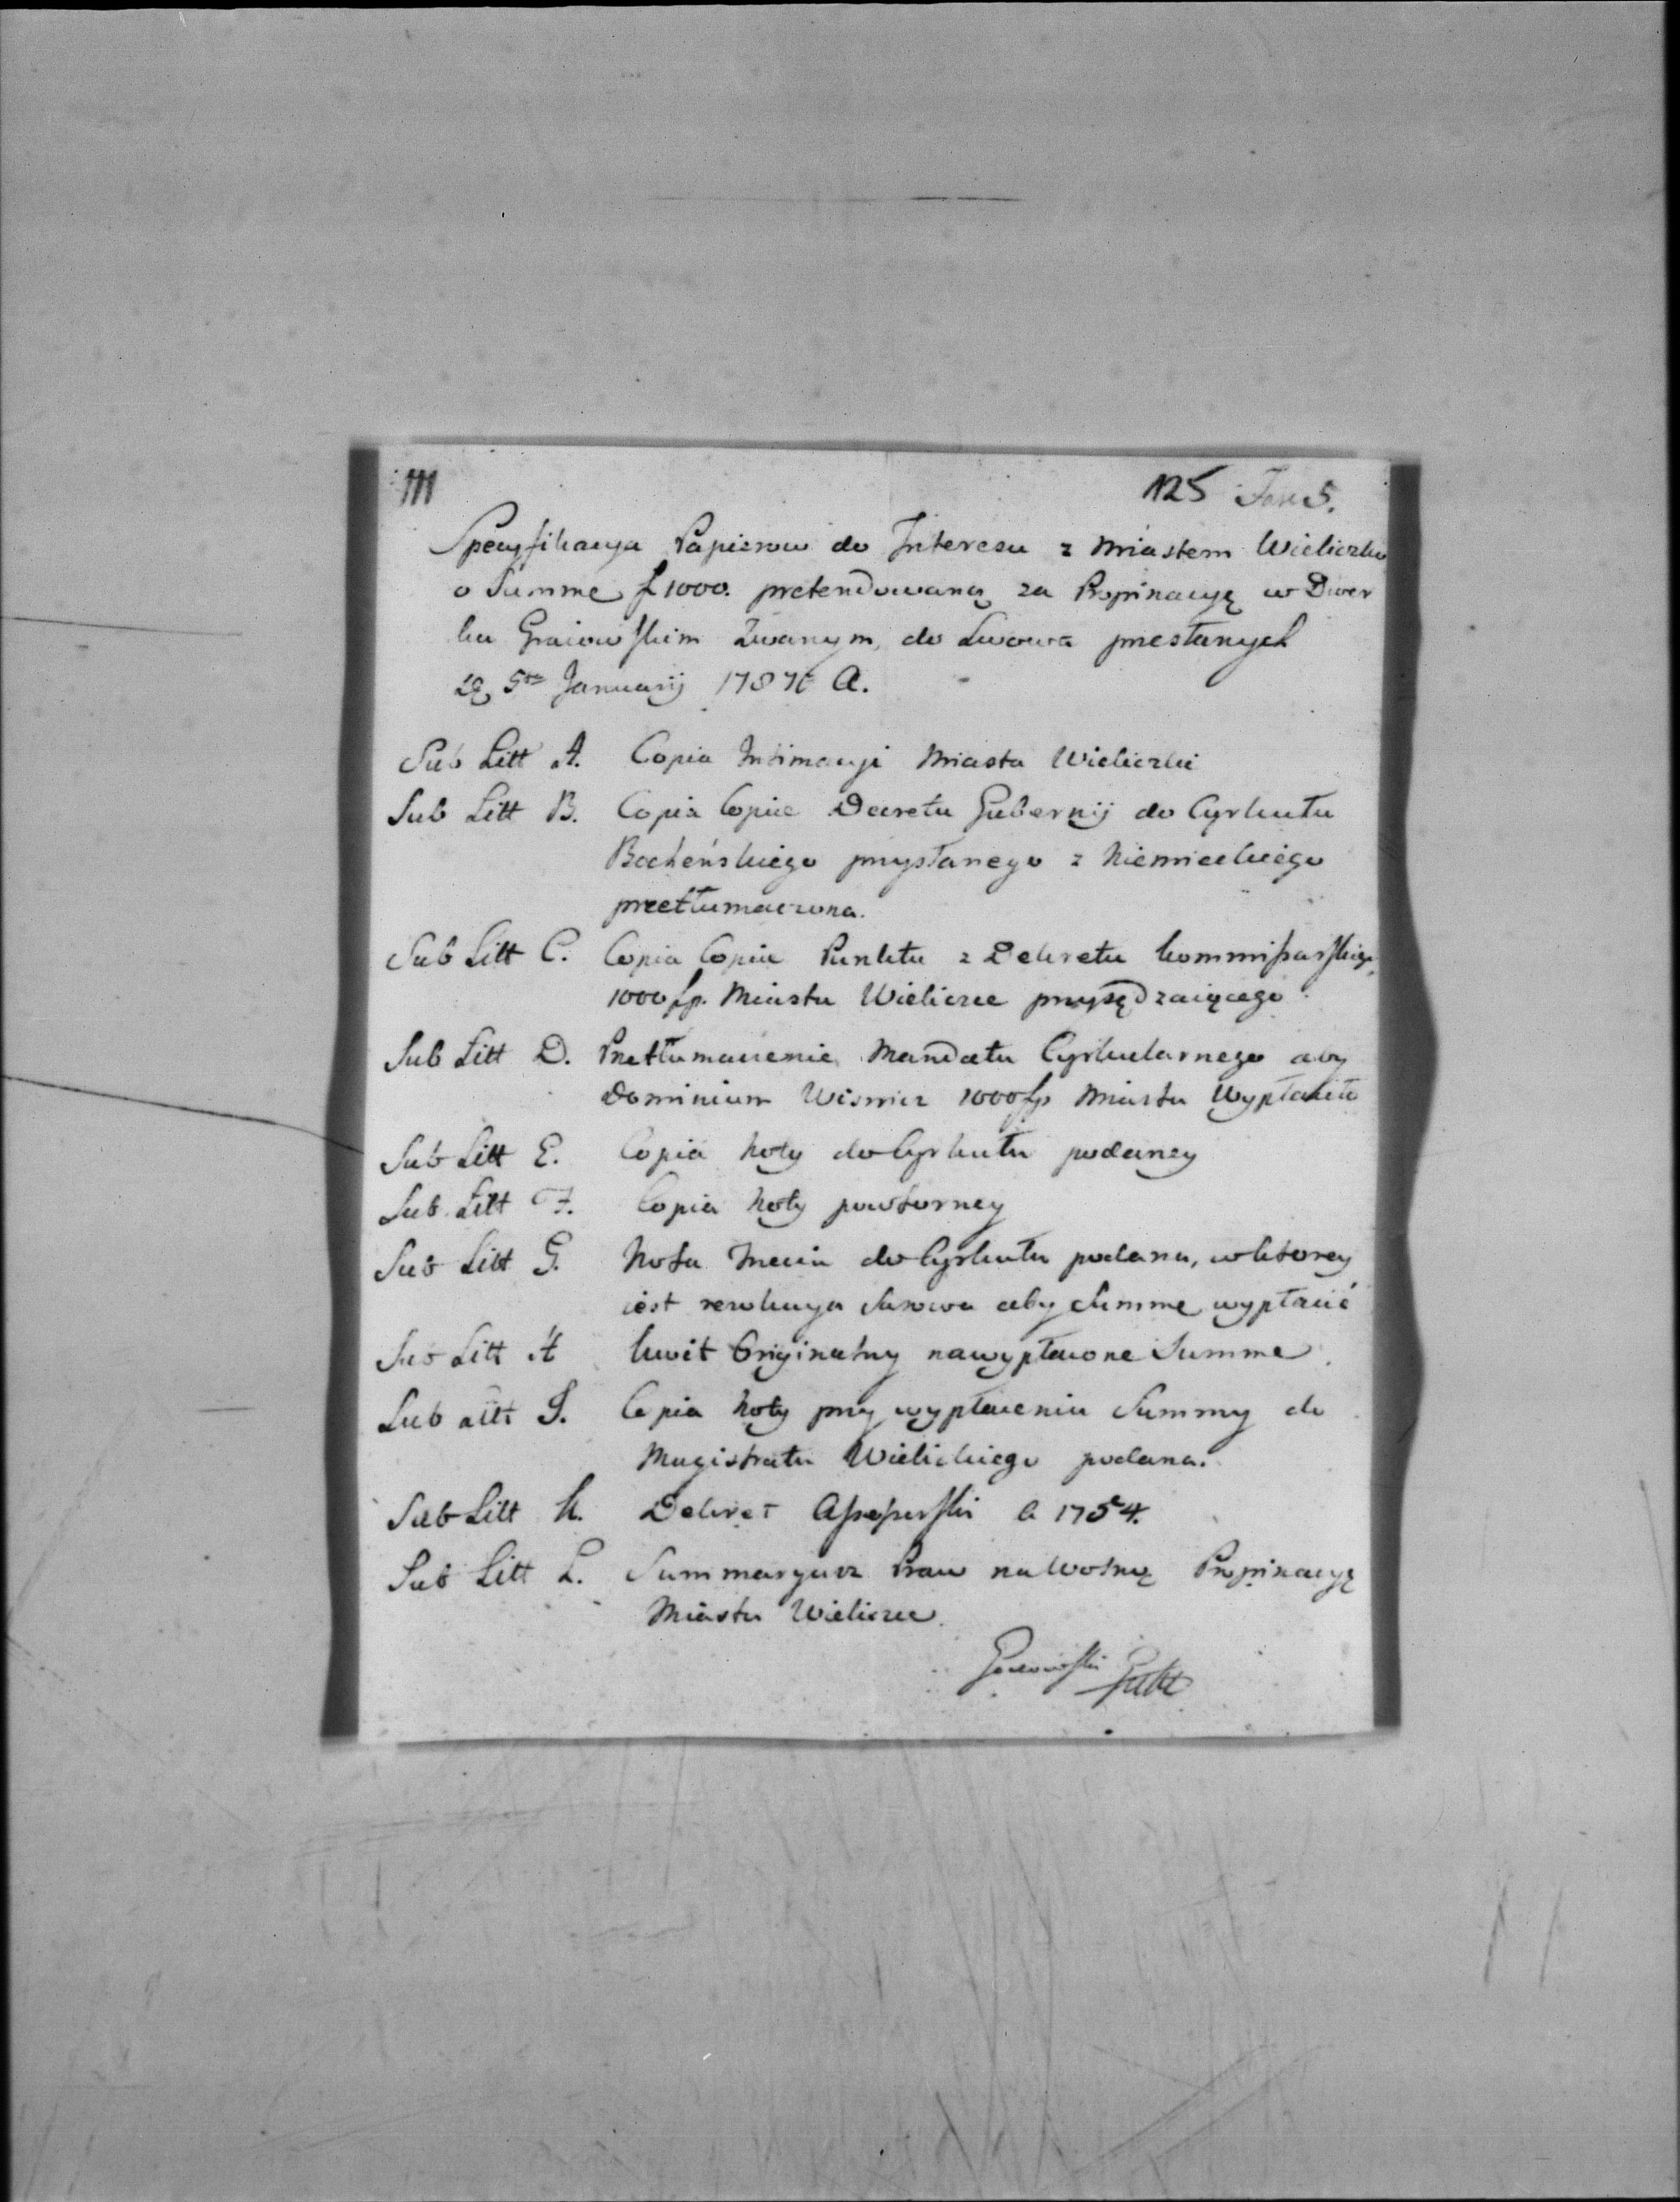 111
125 Fon 5.
Specyfikacya Papierow do Interesu z Miastem Wieliczką
o Summę f 1000. pretendowaną za Propinacyę w Dwor
ku Graiowskim Zwanym, do Lwowa przesłanych
5ta Januarij 1787 A.
Sub Litt A. Copia Intimacyi Miasta Wieliczki
Sub Litt B. Copia Copiie Decretu Gubernij do Cyrkułu
Bocheńskiego przysłanego z Niemieckiego
przetłumaczona.
Sub Litt C. Copia Copiie Punktu z Dekretu Kommissarskiego
1000 fp. Miastu Wieliczce przysądzaiącego
Sub Litt D. Przetłumaczenie Mandatu Cyrkularnego aby
Dominium Wisnicz 1000 fp Miastu Wypłaciło
Sub Litt E. Copia Noty do Cyrkułu podaney
Sub Litt F. Copia Noty powtorney
Sub Litt G. Nota Trzecia do Cyrkułu podana, w ktorey
iest rezolucya surowa aby Summę wypłacić
Sub Litt H Kwit Originalny na wypłacone Summę
Sub Litt I. Copia Noty przy wypłaceniu Summy do
Magistratu Wielickiego podana.
Sub Litt K. Dekret Assessorski A 1754.
Sub Litt L. Summaryusz Praw na Wolną Propinacyę
Miastu Wieliczce